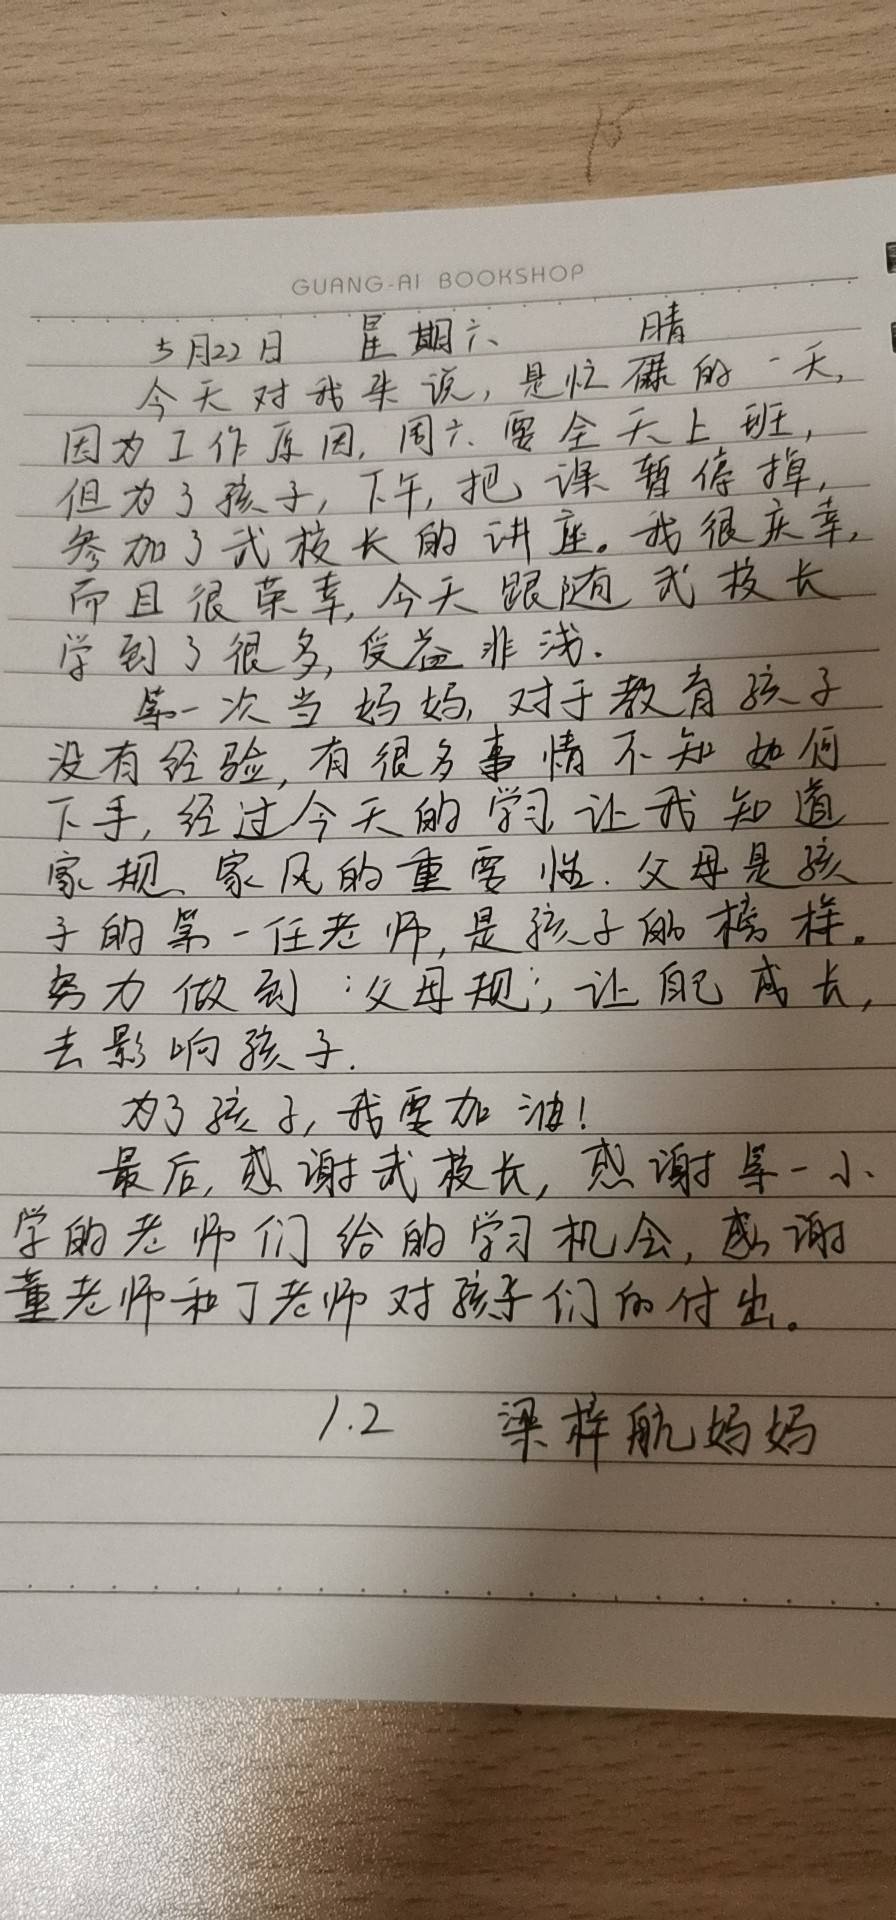 GUANG-AI BOOKSHOP
5月22日 星期六 晴
今天对我来说,是忙碌的一天,
因为工作原因,周六要全天上班,
但为了孩子,下午,把课暂停掉,
参加了武校长的讲座。我很庆幸,
而且很荣幸,今天跟随武校长
学到了很多,受益非浅.
第一次当妈妈,对于教育孩子
没有经验,有很多事情不知如何
下手,经过今天的学习,让我知道
家规、家风的重要性.父母是孩
子的第一任老师,是孩子的榜样。
努力做到“父母规”,让自己成长,
去影响孩子.
为了孩子,我要加油!
最后,感谢武校长,感谢第一小
学的老师们给的学习机会,感谢
董老师和丁老师对孩子们的付出。
1.2 梁梓航妈妈